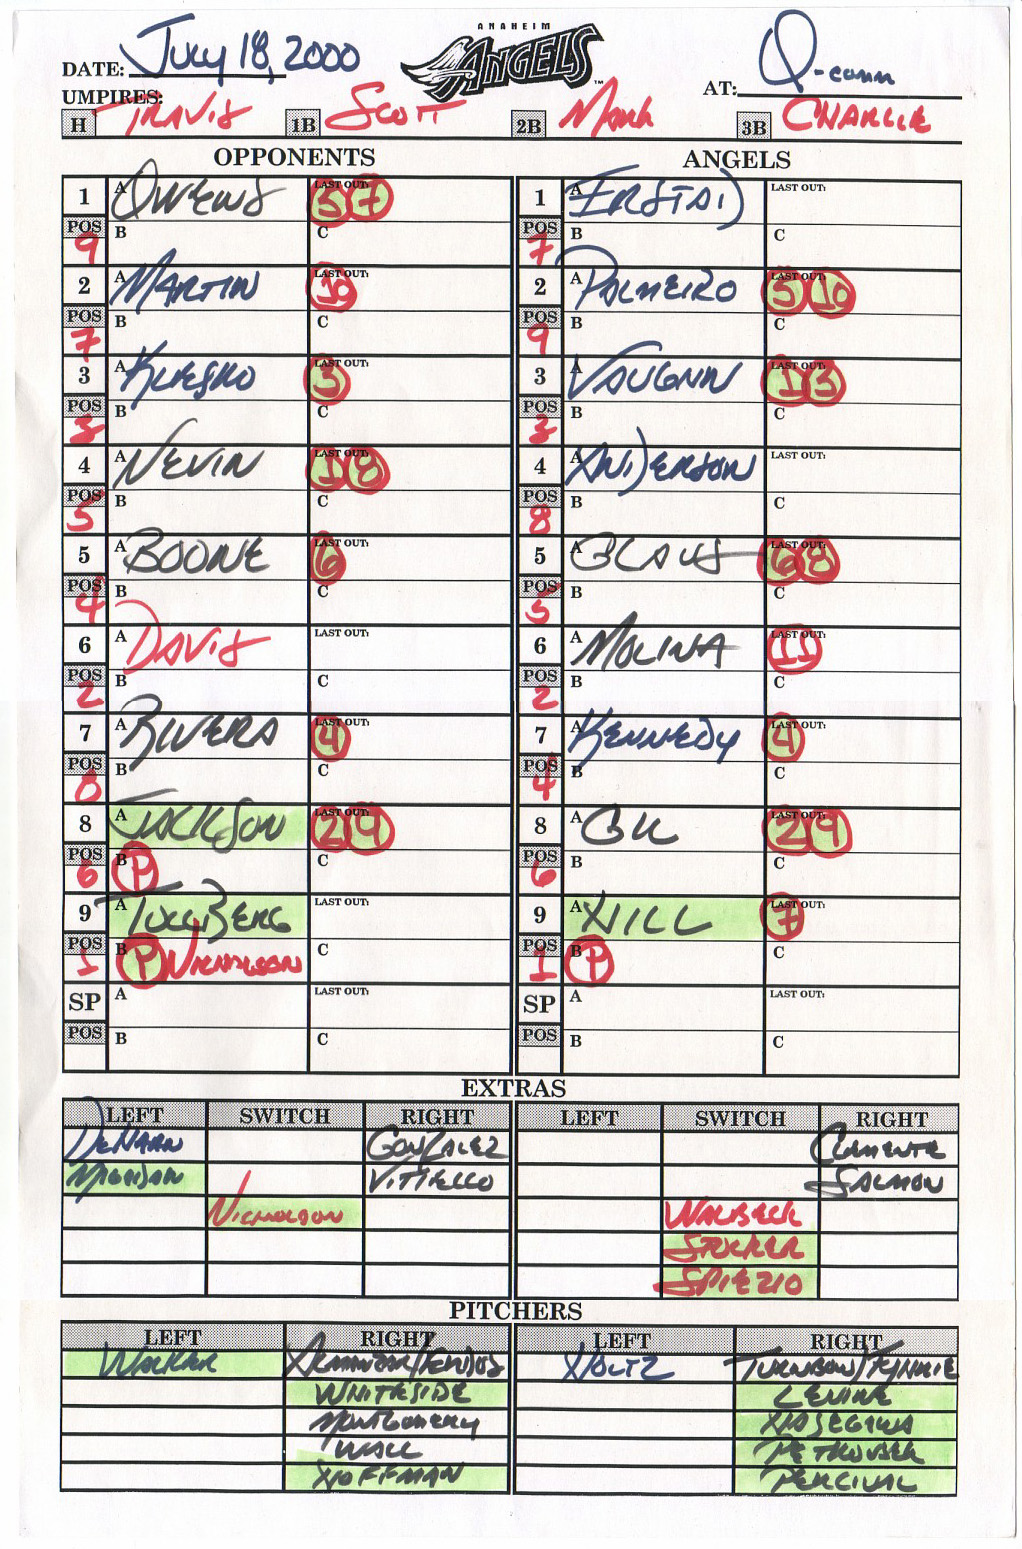 ANAHEIM
ANGELS™
DATE: July 18, 2000
AT: Q-comm
UMPIRES:
H TRAVIS 1B SCOTT 2B Mark 3B CHARLIE
OPPONENTS ANGELS
1 A OWENS LAST OUT: 5 7 1 A ERSTAD LAST OUT:
POS 9 B C POS 7 B C
2 A MARTIN LAST OUT: 10 2 A PALMEIRO LAST OUT: 5 10
POS 7 B C POS 9 B C
3 A KLESKO LAST OUT: 3 3 A VAUGHN LAST OUT: 1 3
POS 3 B C POS 3 B C
4 A NEVIN LAST OUT: 1 8 4 A ANDERSON LAST OUT:
POS 5 B C POS 8 B C
5 A BOONE LAST OUT: 6 5 A GLAUS LAST OUT: 6 8
POS 4 B C POS 5 B C
6 A DAVIS LAST OUT: 6 A MOLINA LAST OUT: 11
POS 2 B C POS 2 B C
7 A RIVERA LAST OUT: 4 7 A KENNEDY LAST OUT: 4
POS 8 B C POS 4 B C
8 A JACKSON LAST OUT: 2 9 8 A GIL LAST OUT: 2 9
POS 6 B P C POS 6 B C
9 A TOLLBERG LAST OUT: 9 A HILL LAST OUT: 7
POS 1 B P NICHOLSON C POS 1 B P C
SP A LAST OUT: SP A LAST OUT:
POS B C POS B C
EXTRAS
LEFT SWITCH RIGHT LEFT SWITCH RIGHT
DeHAAN GONZALEZ CLEMENTE
MAGADAN VITIELLO SALMON
NICHOLSON WALBECK
STOCKER
SPIEZIO
PITCHERS
LEFT RIGHT LEFT RIGHT
WALKER ALMANZAR HOLTZ TURNBOW/
WHITESIDE LEVINE
MONTGOMERY HASEGAWA
WALL PETKOVSEK
HOFFMAN PERCIVAL